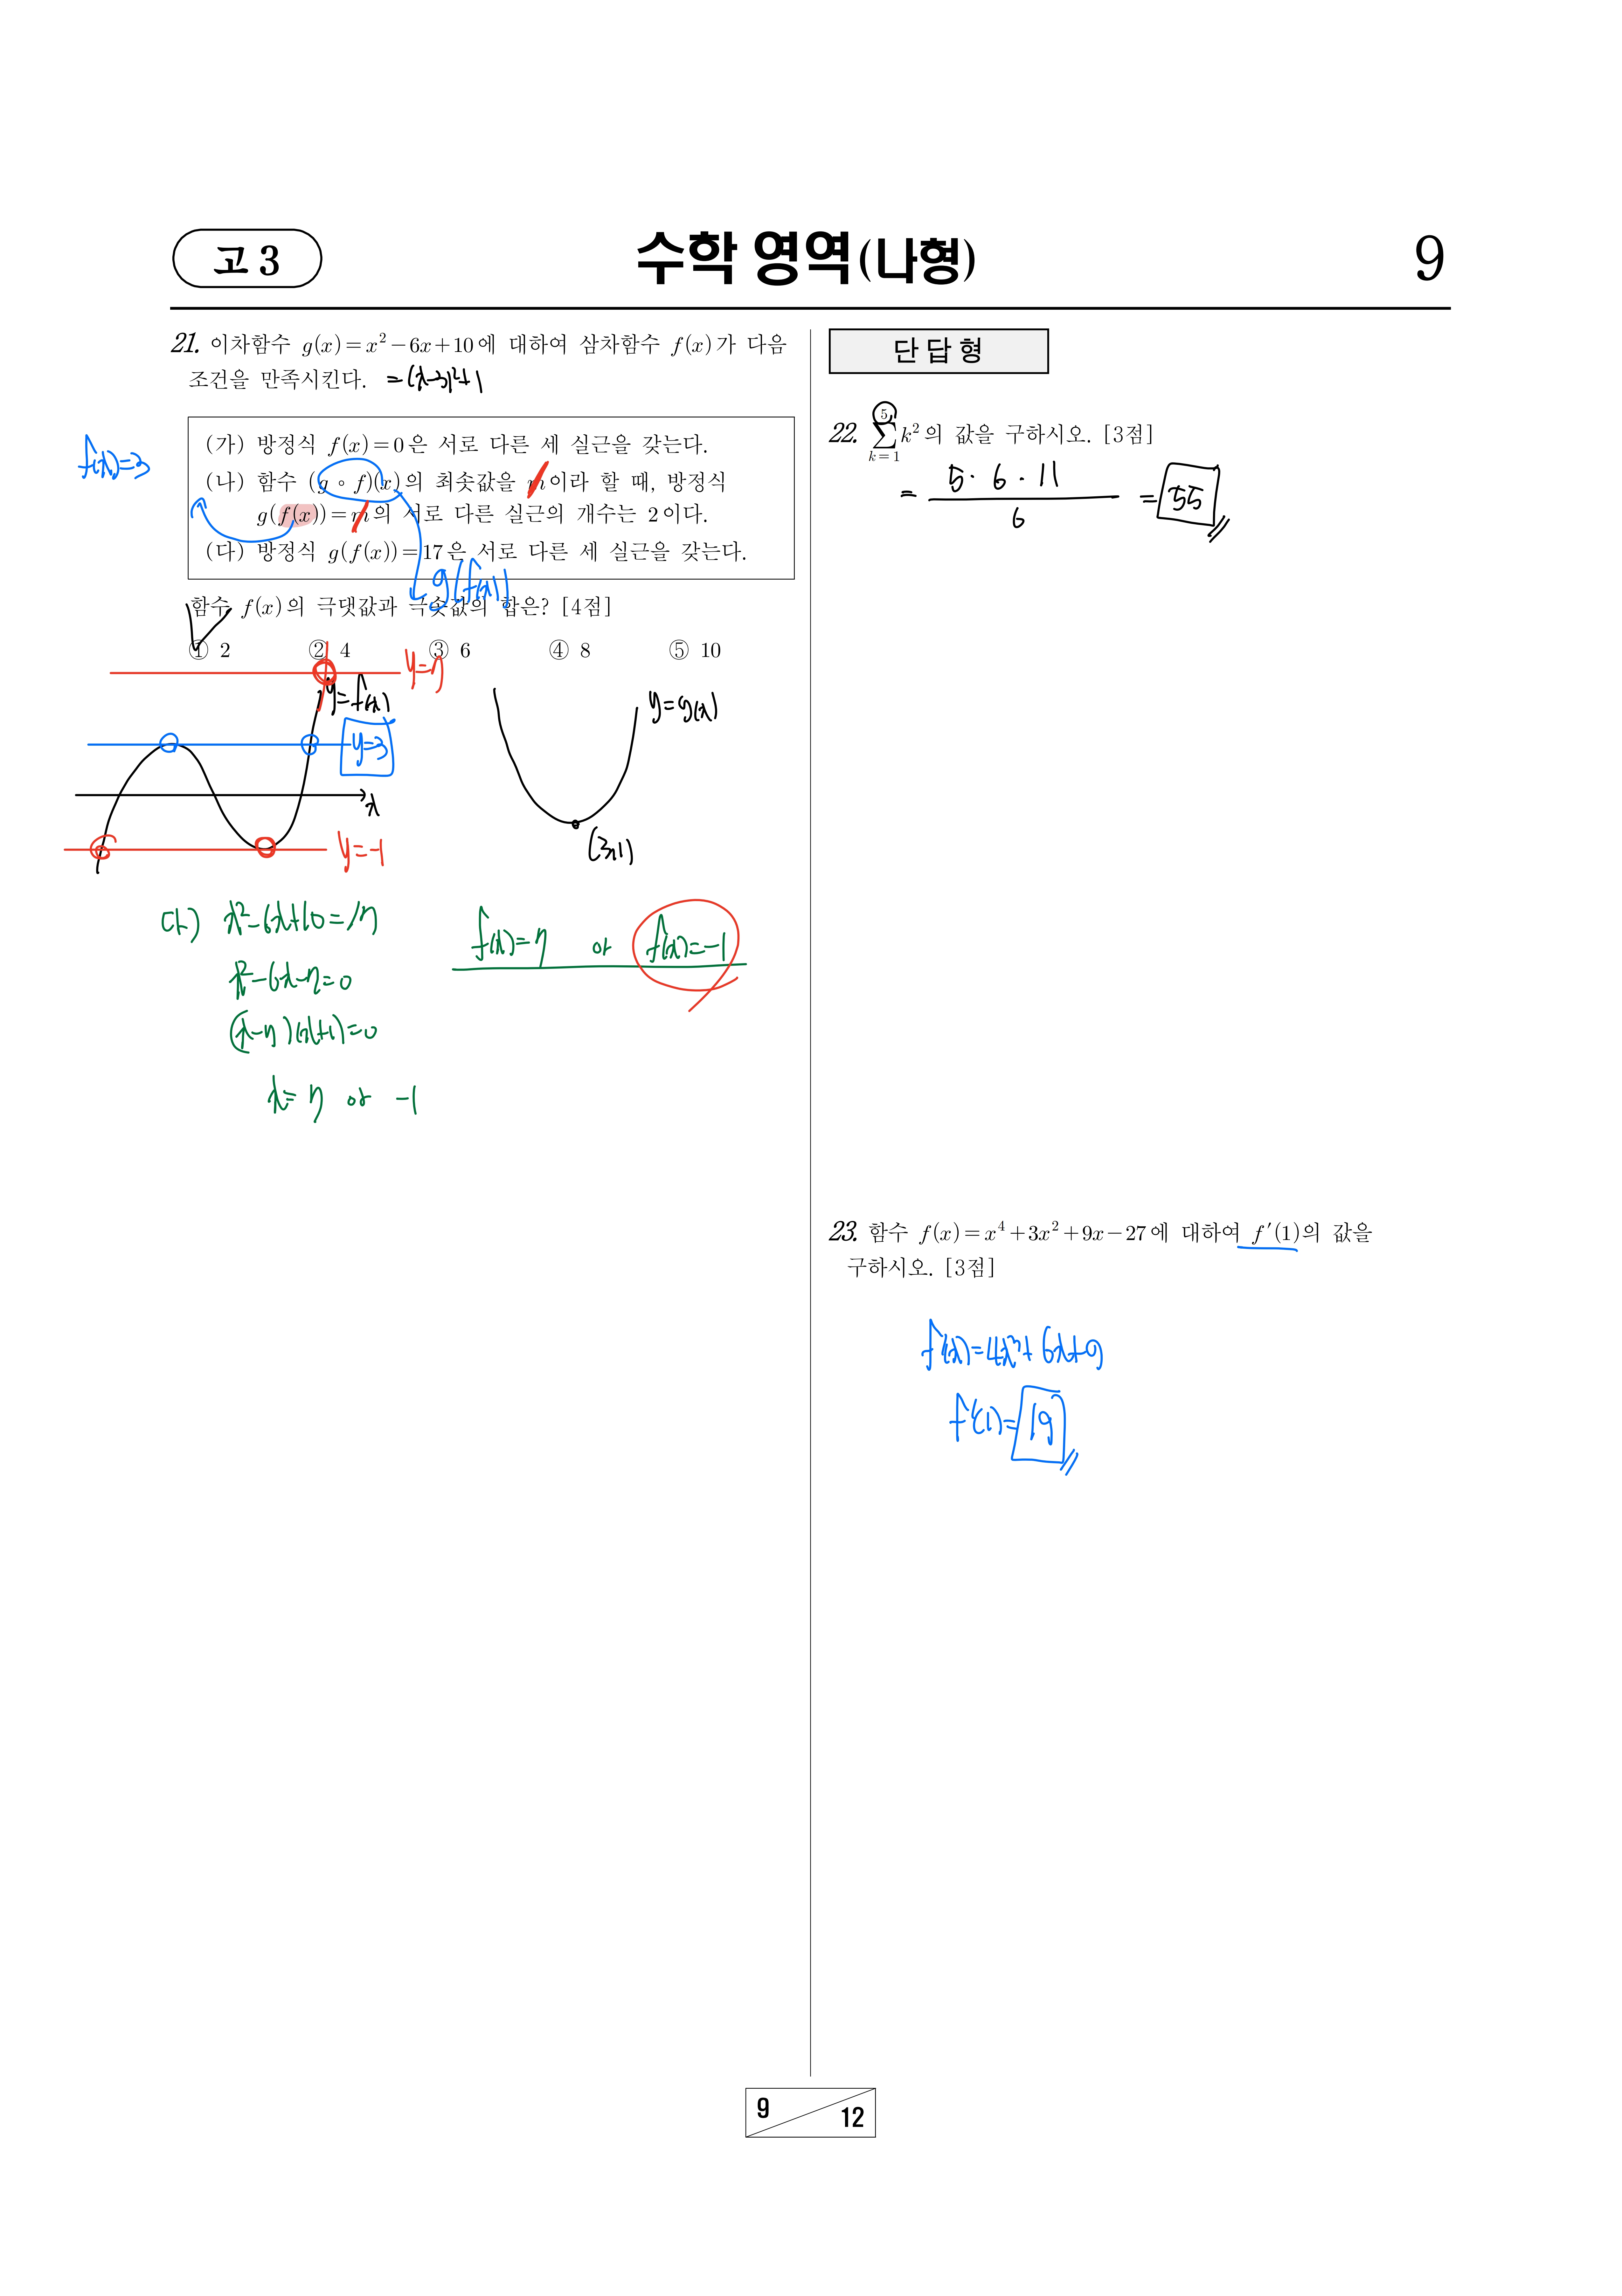 고 3
수학 영역(나형)
9
21. 이차함수 g(x)=x²-6x+10에 대하여 삼차함수 f(x)가 다음
조건을 만족시킨다. =(x-3)²+1
(가) 방정식 f(x)=0은 서로 다른 세 실근을 갖는다.
f(x)=3
(나) 함수 (g∘f)(x)의 최솟값을 m이라 할 때, 방정식
g(f(x))=m의 서로 다른 실근의 개수는 2이다.
(다) 방정식 g(f(x))=17은 서로 다른 세 실근을 갖는다.
g(f(x))
함수 f(x)의 극댓값과 극솟값의 합은? [4점]
① 2 ② 4 ③ 6 ④ 8 ⑤ 10
y=7
y=f(x)
y=g(x)
y=3
x
y=-1
(3,1)
다) x²-6x+10=17
x²-6x-7=0
(x-7)(x+1)=0
x=7 or -1
f(x)=7 or f(x)=-1
단답형
22. 5∑k=1 k²의 값을 구하시오. [3점]
= 5·6·11
6
= 55
23. 함수 f(x)=x⁴+3x²+9x-27에 대하여 f′(1)의 값을
구하시오. [3점]
f'(x)=4x³+6x+9
f'(1)=19
9
12